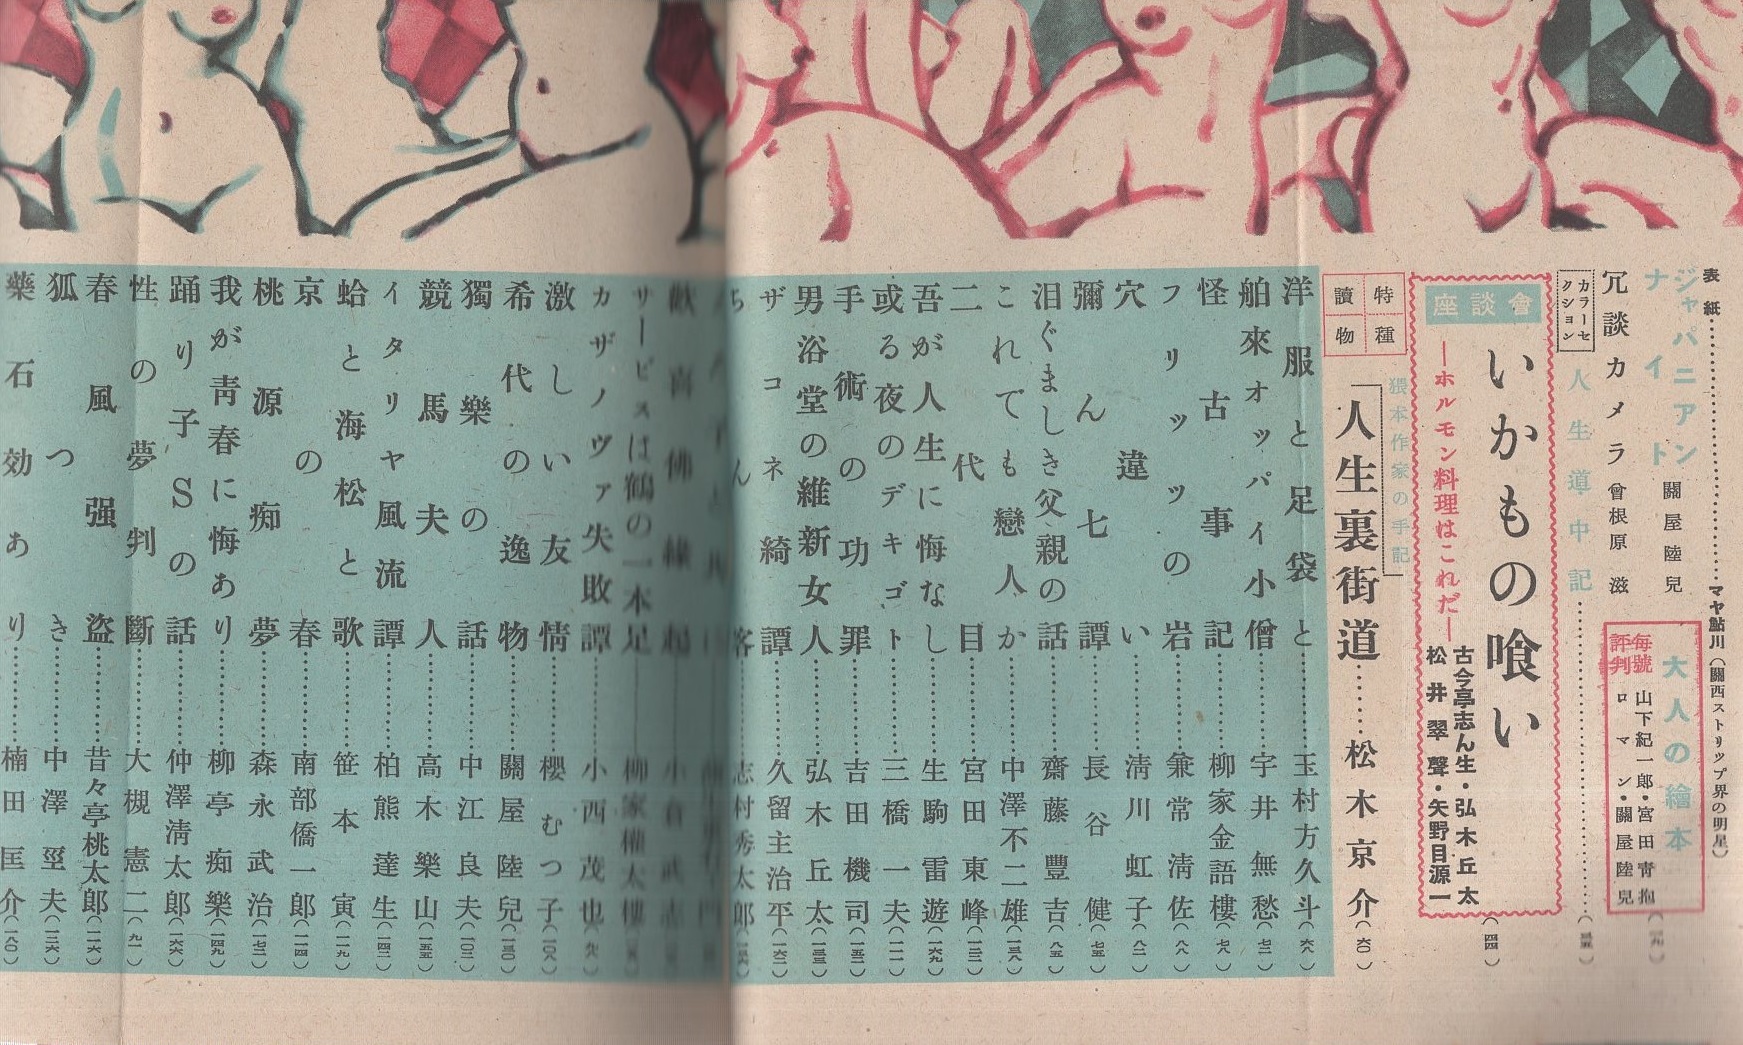 表紙…………マヤ鮎川（關西ストリップ界の明星）
ジャパニアン
ナイト
關屋陸兒
大人の繪本
冗談カメラ
曾根原滋
毎號
評判
山下紀一郎・宮田靑抱
ロマン・關屋陸兒
カラーセクション
人生道中記…………
座談會
いかもの喰い
（四四）
―ホルモン料理はこれだ―
古今亭志ん生・弘木丘太
松井翠聲・矢野目源一
特種
讀物
猥本作家の手記
人生裏街道……松木京介（六〇）
洋服と足袋と…………玉村方久斗（六八）
舶來オッパイ小僧…………宇井無愁（七二）
怪古事記…………柳家金語樓（七八）
フリッツの岩…………兼常淸佐（八八）
穴違い…………淸川虹子（八二）
彌ん七譚…………長谷健（七五）
泪ぐましき父親の話…………齋藤豐吉（八五）
これでも戀人か…………中澤不二雄（一三八）
二代目…………宮田東峰（一三二）
吾が人生に悔なし…………生駒雷遊（一六九）
或る夜のデキゴト…………三橋一夫（一一一）
手術の功罪…………吉田機司（一五二）
男浴堂の維新女人…………弘木丘太（一三三）
ザコネ綺譚…………久留主治平（一六二）
ちん客…………志村秀太郎
歡喜佛緣起…………小倉武志
サービスは鶴の一本足…………柳家權太樓
カザノヴァ失敗譚…………小西茂也（九六）
激しい友情…………櫻むつ子（一〇八）
希代の逸物…………關屋陸兒（一三〇）
獨樂の話…………中江良夫（一〇三）
競馬夫人…………高木樂山（一五五）
イタリヤ風流譚…………柏熊達生（一四二）
蛤と海松と歌…………笹本寅（一一九）
京の春…………南部僑一郎（一一四）
桃源痴夢…………森永武治（一七二）
我が靑春に悔あり…………柳亭痴樂（一四九）
踊り子Ｓの話…………仲澤淸太郎（一六六）
性の夢判斷…………大槻憲二（九一）
春風强盜…………昔々亭桃太郎（一一六）
狐つき…………中澤巠夫（一三六）
藥石効あり…………楠田匡介（一八〇）